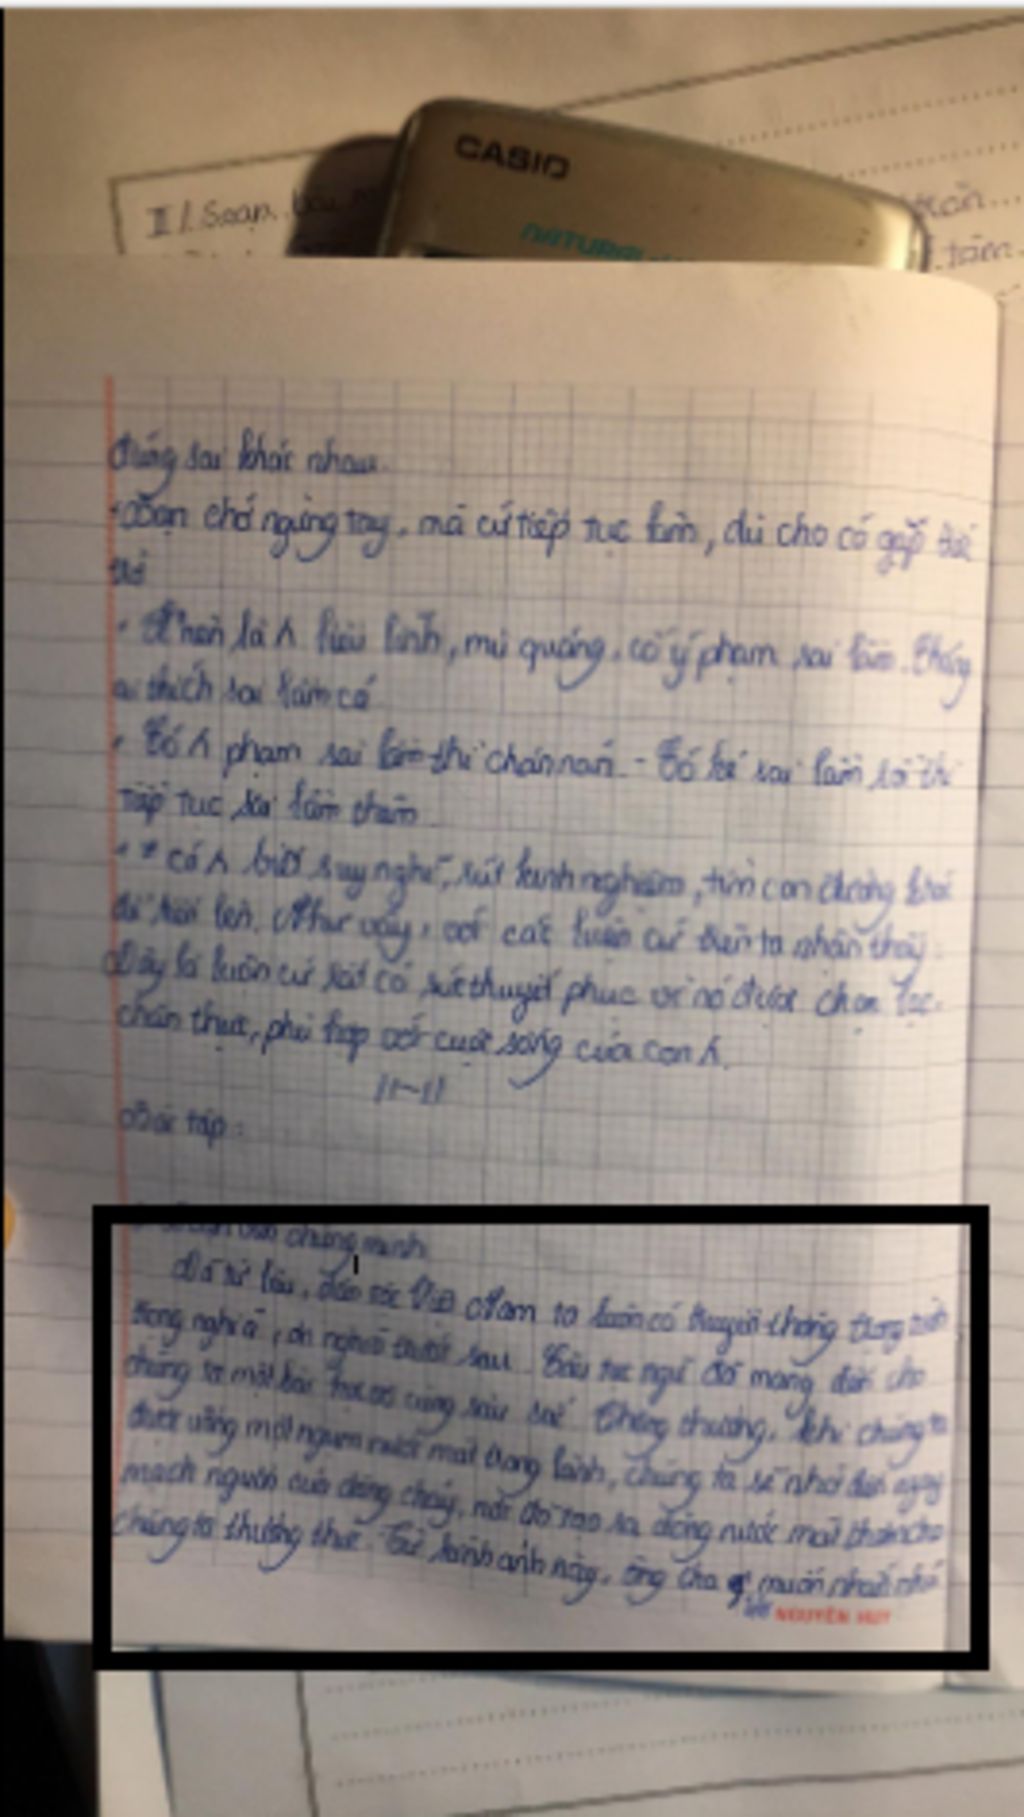 II/. Soạn bài
CASIO
NATURAL
đúng sai khác nhau.
Bạn chớ ngừng tay, mà cứ tiếp tục làm, dù cho có gặp trắc
trở
liều lĩnh, mù quáng, cố ý phạm sai lầm. Chẳng
ai thích sai lầm cả
Có phạm sai lầm thì chán nản - Có kẻ sai lầm rồi thì
tiếp tục sai lầm thêm
có biết suy nghĩ, rút kinh nghiệm, tìm con đường khác
để tiến lên. Như vậy, với các luận cứ trên ta nhận thấy:
Đây là luận cứ rất có sức thuyết phục vì nó được chọn lọc,
chân thực, phù hợp với cuộc sống của con
Bài tập:
chứng minh
Đã từ lâu, dân tộc Việt Nam ta luôn có truyền thống trọng tình
trọng nghĩa, ân nghĩa trước sau. Câu tục ngữ đã mang đến cho
chúng ta một bài học vô cùng sâu sắc. Thông thường, khi chúng ta
được uống một ngụm nước mát trong lành, chúng ta sẽ nhớ đến ngay
mạch nguồn của dòng chảy, nơi đã tạo ra dòng nước mát cho
chúng ta thưởng thức. Từ hình ảnh này, ông cha muốn nhắn nhủ
NGUYÊN HUY